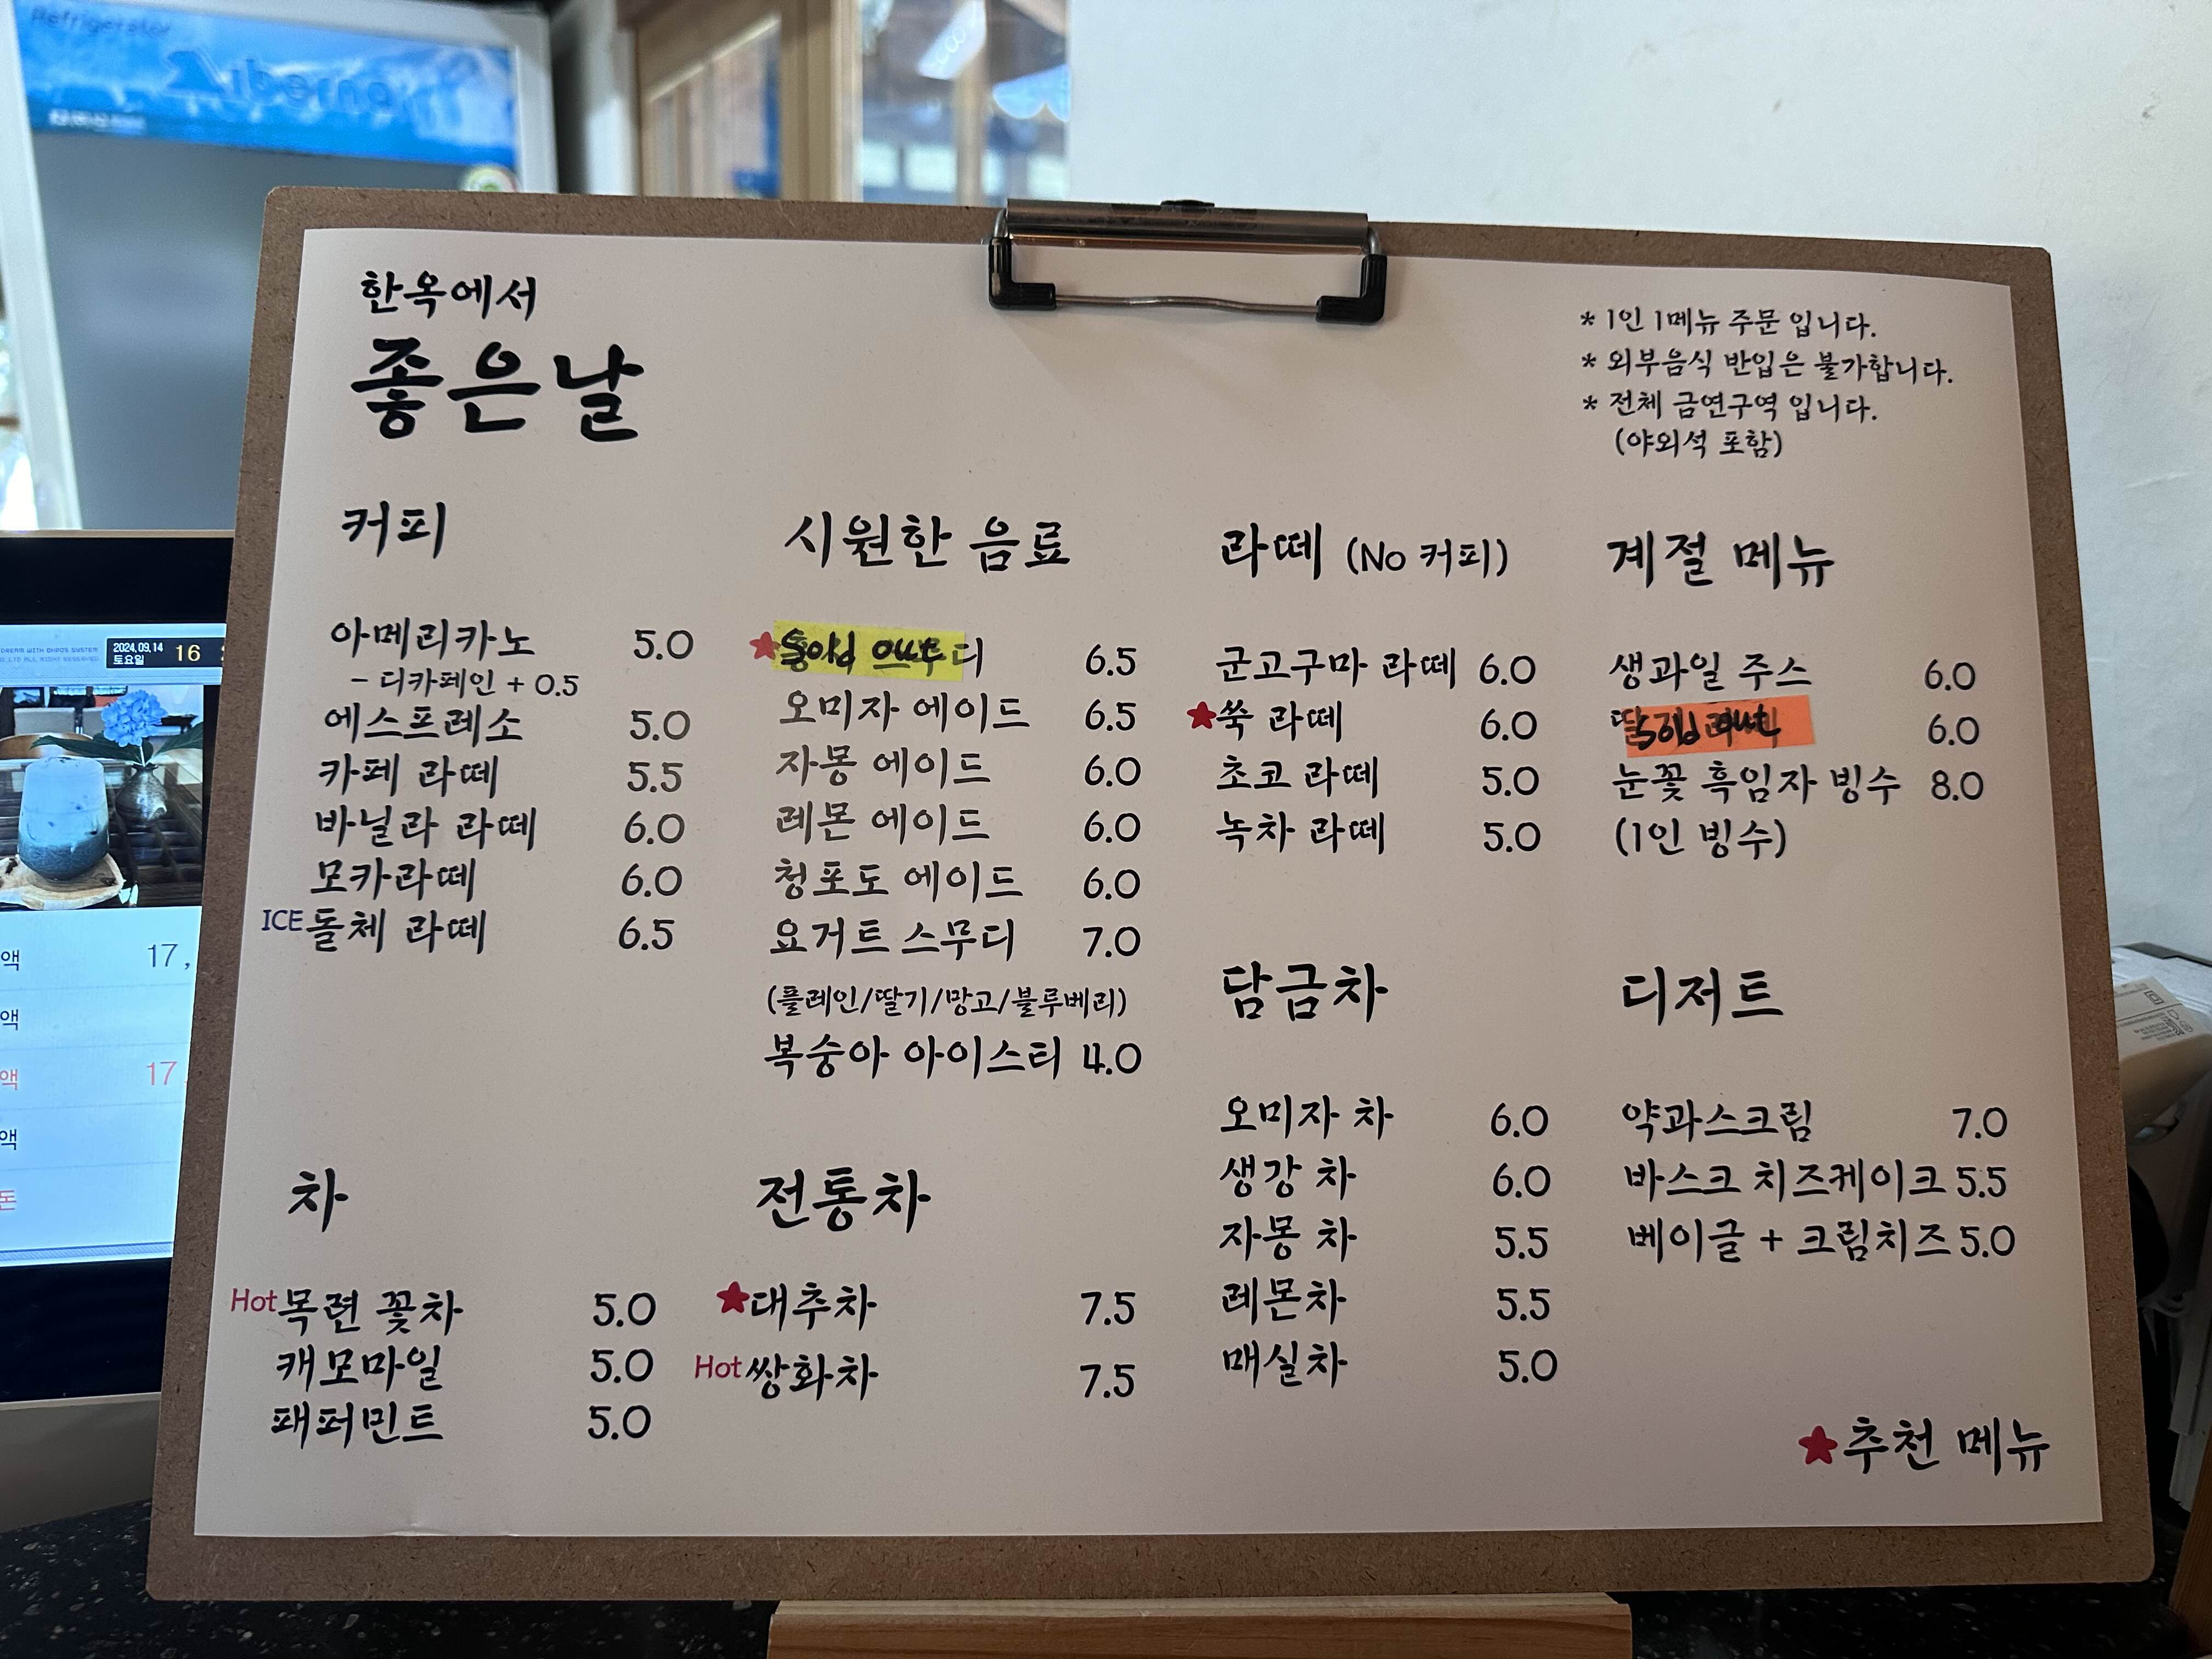 Refrigerator
한옥에서
좋은날
* 1인 1메뉴 주문 입니다.
* 외부음식 반입은 불가합니다.
* 전체 금연구역 입니다.
(야외석 포함)
커피
아메리카노 5.0
- 디카페인 + 0.5
에스프레소 5.0
카페 라떼 5.5
바닐라 라떼 6.0
모카라떼 6.0
ICE 돌체 라떼 6.5
시원한 음료
★ Sold out 디 6.5
오미자 에이드 6.5
자몽 에이드 6.0
레몬 에이드 6.0
청포도 에이드 6.0
요거트 스무디 7.0
(플레인/딸기/망고/블루베리)
복숭아 아이스티 4.0
라떼 (No 커피)
군고구마 라떼 6.0
★쑥 라떼 6.0
초코 라떼 5.0
녹차 라떼 5.0
계절 메뉴
생과일 주스 6.0
Sold out 6.0
눈꽃 흑임자 빙수 8.0
(1인 빙수)
차
Hot 목련 꽃차 5.0
캐모마일 5.0
패퍼민트 5.0
전통차
★대추차 7.5
Hot 쌍화차 7.5
담금차
오미자 차 6.0
생강 차 6.0
자몽 차 5.5
레몬차 5.5
매실차 5.0
디저트
약과스크림 7.0
바스크 치즈케이크 5.5
베이글 + 크림치즈 5.0
★추천 메뉴
2024.09.14
토요일
16
액 17,
액
액 17
액
돈